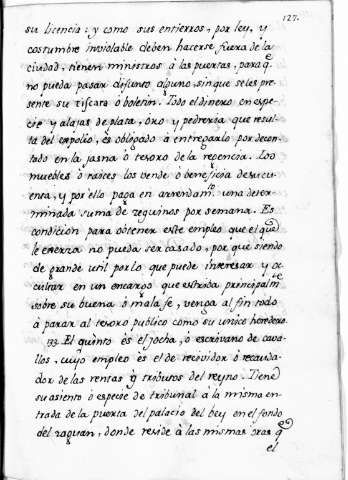 127.
su licencia: y como sus entierros, por ley, y
costumbre inviolable deben hacerse fuera de la
ciudad, tienen ministros à las puertas, para q.e
no pueda pasar difunto alguno, sin que se les pre-
sente su tiscara ò boletin. Todo el dinero en espe-
cie y alajas de plata, oro y pedreria que resul-
ta del expolio, es obligado à entregarlo por decon-
tado en la jasna ò tesoro de la regencia. Los
muebles ò raices los vende ò beneficia de su cu-
enta, y por ello paga en arrendam.to una deter-
minada suma de zequinos por semana. Es
condicion para obtener este empleo que el que
le exerza no pueda ser casado, porque siendo
de grande util por lo que puede interesar y oc-
cultar en un encargo que estriba principalm.te
sobre su buena ò mala fe, venga al fin todo
à parar al tesoro publico como su unico heredero.
133. El quinto es el jocha, ò escrivano de cava-
llos, cuyo empleo es el de recividor ò recauda-
dor de las rentas y tributos del reyno. Tiene
su asiento ò especie de tribunal à la misma en-
trada de la puerta del palacio del bey en el fondo
del zaguan, donde reside à las mismas oras q.e
el